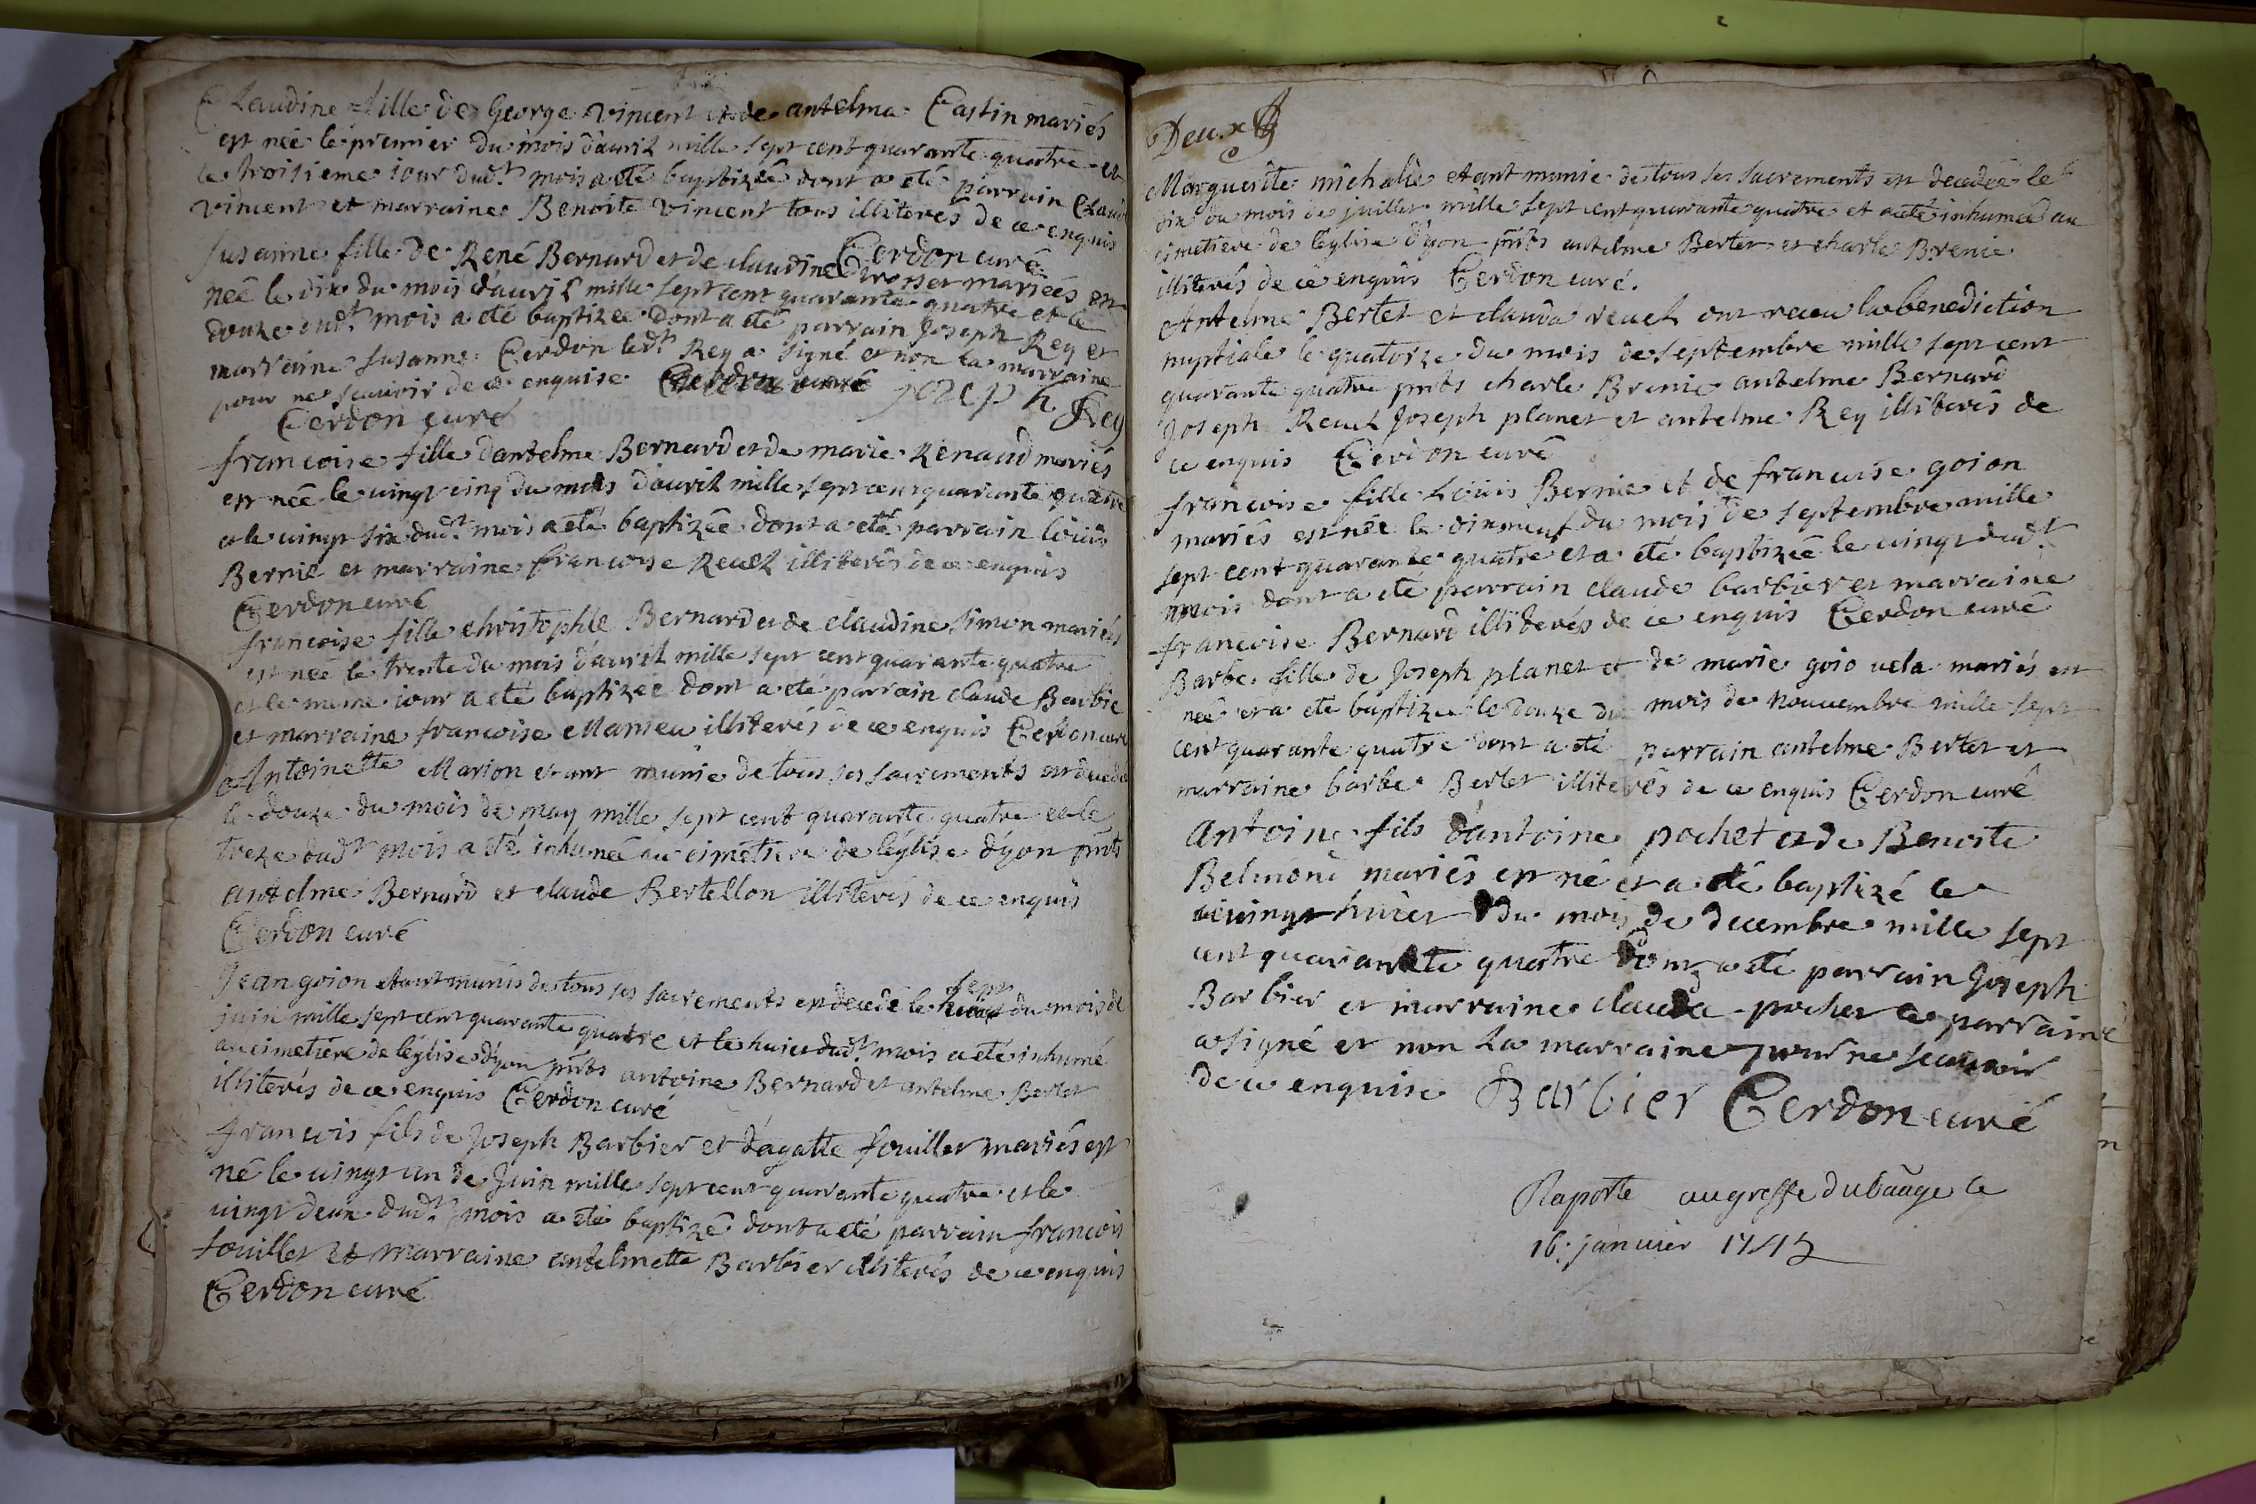 Claudine fille de George vincent et de antelma Castin mariés
est née le premier du mois d'auril mille sept cent quarante quatre et
le troisieme iour dud.t mois a eté baptizée dont a eté parrain Claude
vincent et marraine Benoite vincent tous illiterés de ce enquis
Cerdon curé
Susanne fille de René Bernard et de claudine mariées est
née le dix du mois d'auril mille sept cent quarante quatre et le
douze dud.t mois a eté baptizée dont a eté parrain Joseph Rey et
marraine Susanne Cerdon led.t Rey a signé et non la marraine
pour ne scauoir de ce enquise Cerdon curé joseph Rey
Cerdon curé
francoise fille d'antelme Bernard et de marie Renaud mariés
est née le uingt cinq du mois d'auril mille sept cent quarante quatre
et le uingt six dud.t mois a eté baptizée dont a eté parrain loüis
Bernié et marraine francoise Reuel illiterés de ce enquis
Cerdon curé
francoise fille christophle Bernard et de claudine simon mariés
est née le trente du mois d'auril mille sept cent quarante quatre
et le meme iour a eté baptizée dont a eté parrain claude Barbie
et marraine francoise illiterés de ce enquis Cerdon curé
Antoinette Marion etant munie de tous ses sacrements est decedée
le douze du mois de may mille sept cent quarante quatre et le
treze dud.t mois a eté inhumée au cimetiere de l'église d'yon pnts
antelme Bernard et claude Bertellon illiterés de ce enquis
Cerdon curé
Jean goion etant munis de tous ses sacrements est decedé le sept du mois de
juin mille sept cent quarante quatre et le huict dud.t mois a eté inhumé
au cimetiere de l'église d'yon pnts antoine Bernard et antelme Bertet
illiterés de ce enquis Cerdon curé
francois fils de Joseph Barbier et d'agatte fouillet mariés est
né le uingt un de Juin mille sept cent quarante quatre et le
uingt deux dud.t mois a eté baptizé dont a eté parrain francois
fouillet et marraine antelmette Barbier illiterés de ce enquis
Cerdon curé
Deux
Marguerite michalie etant munie de tous ses sacrements est decedée le
dix du mois de juillet mille sept cent quarante quatre et a eté inhumée au
cimetiere de l'église d'yon pnts antelme Bertet et charle Brenie
illiterés de ce enquis Cerdon curé.
Antelme Bertet et clauda reuel ont receu la benediction
nuptiale le quatorze du mois de septembre mille sept cent
quarante quatre pnts charle Brenie antelme Bernard
Joseph Reuel Joseph planet et antelme Rey illiterés de
ce enquis Cerdon curé
francoise fille Loüis Bernie et de francoise goion
mariés est née le dixneuf du mois de septembre mille
sept cent quarante quatre et a eté baptizée le uingt dud.t
mois dont a eté parrain claude barbier et marraine
francoise Bernard illiterés de ce enquis Cerdon curé
Barbe fille de Joseph planet et de marie goio uela mariés est
née et a eté baptizée le douze du mois de nouuembre mille sept
cent quarante quatre dont a eté parrain antelme Bertet et
marraine barbe Bertet illiterés de ce enquis Cerdon curé
Antoine fils d'antoine pochet et de Benoite
Belmond mariés est né et a eté baptizé le
uingt huict du mois de decembre mille sept
cent quarante quatre dont a eté parrain Joseph
Barbier et marraine clauda pochet le parrain
a signé et non la marraine pour ne scauoir
de ce enquise Barbier Cerdon curé
Raporté au greffe du baage le
16: januier 1745